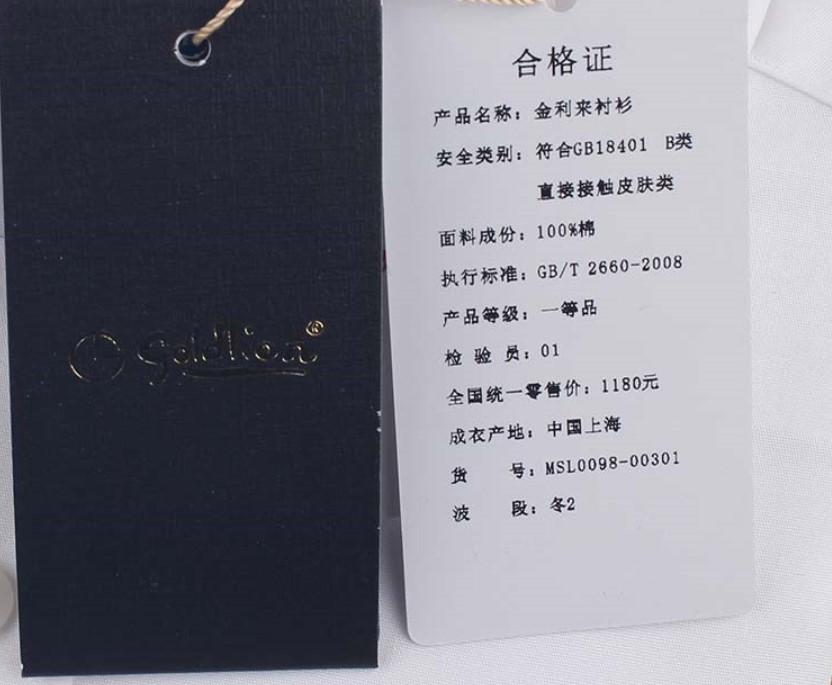 goldlion®
合格证
产品名称：金利来衬衫
安全类别：符合GB18401 B类
直接接触皮肤类
面料成份：100%棉
执行标准：GB/T 2660-2008
产品等级：一等品
检 验 员：01
全国统一零售价：1180元
成衣产地：中国上海
货 号：MSL0098-00301
波 段：冬2